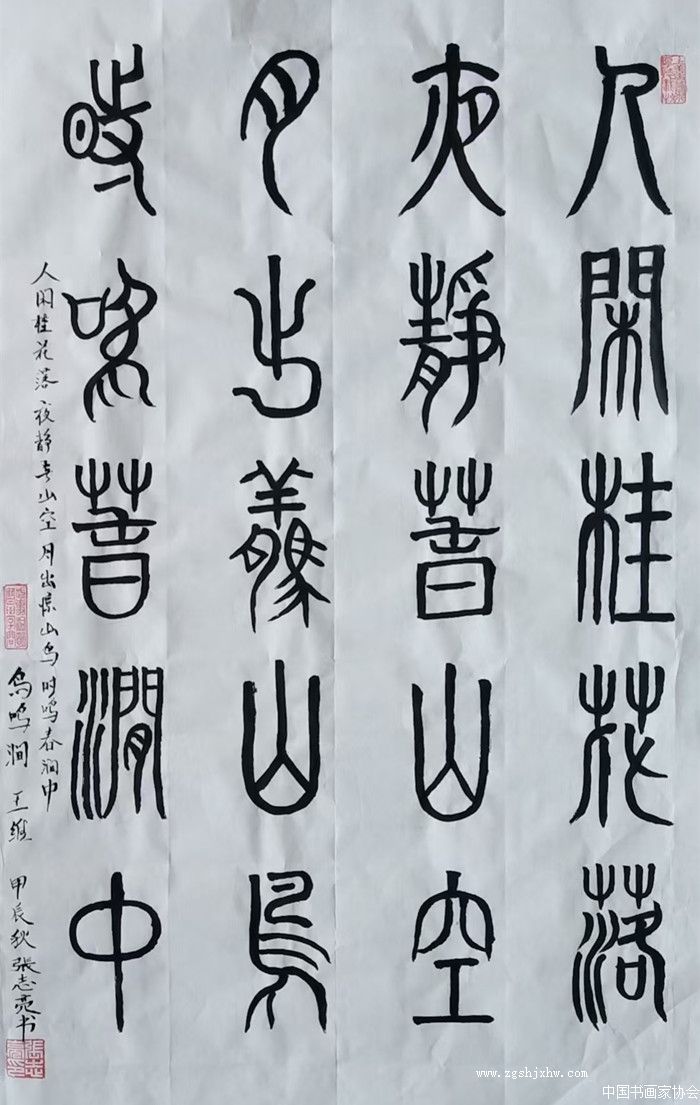 人閒桂花落
夜靜春山空
月出驚山鳥
時鳴春澗中
人闲桂花落夜静春山空月出惊山鸟时鸣春涧中
鸟鸣涧 王维 甲辰秋张志亮书
www.zgshjxhw.com
中国书画家协会